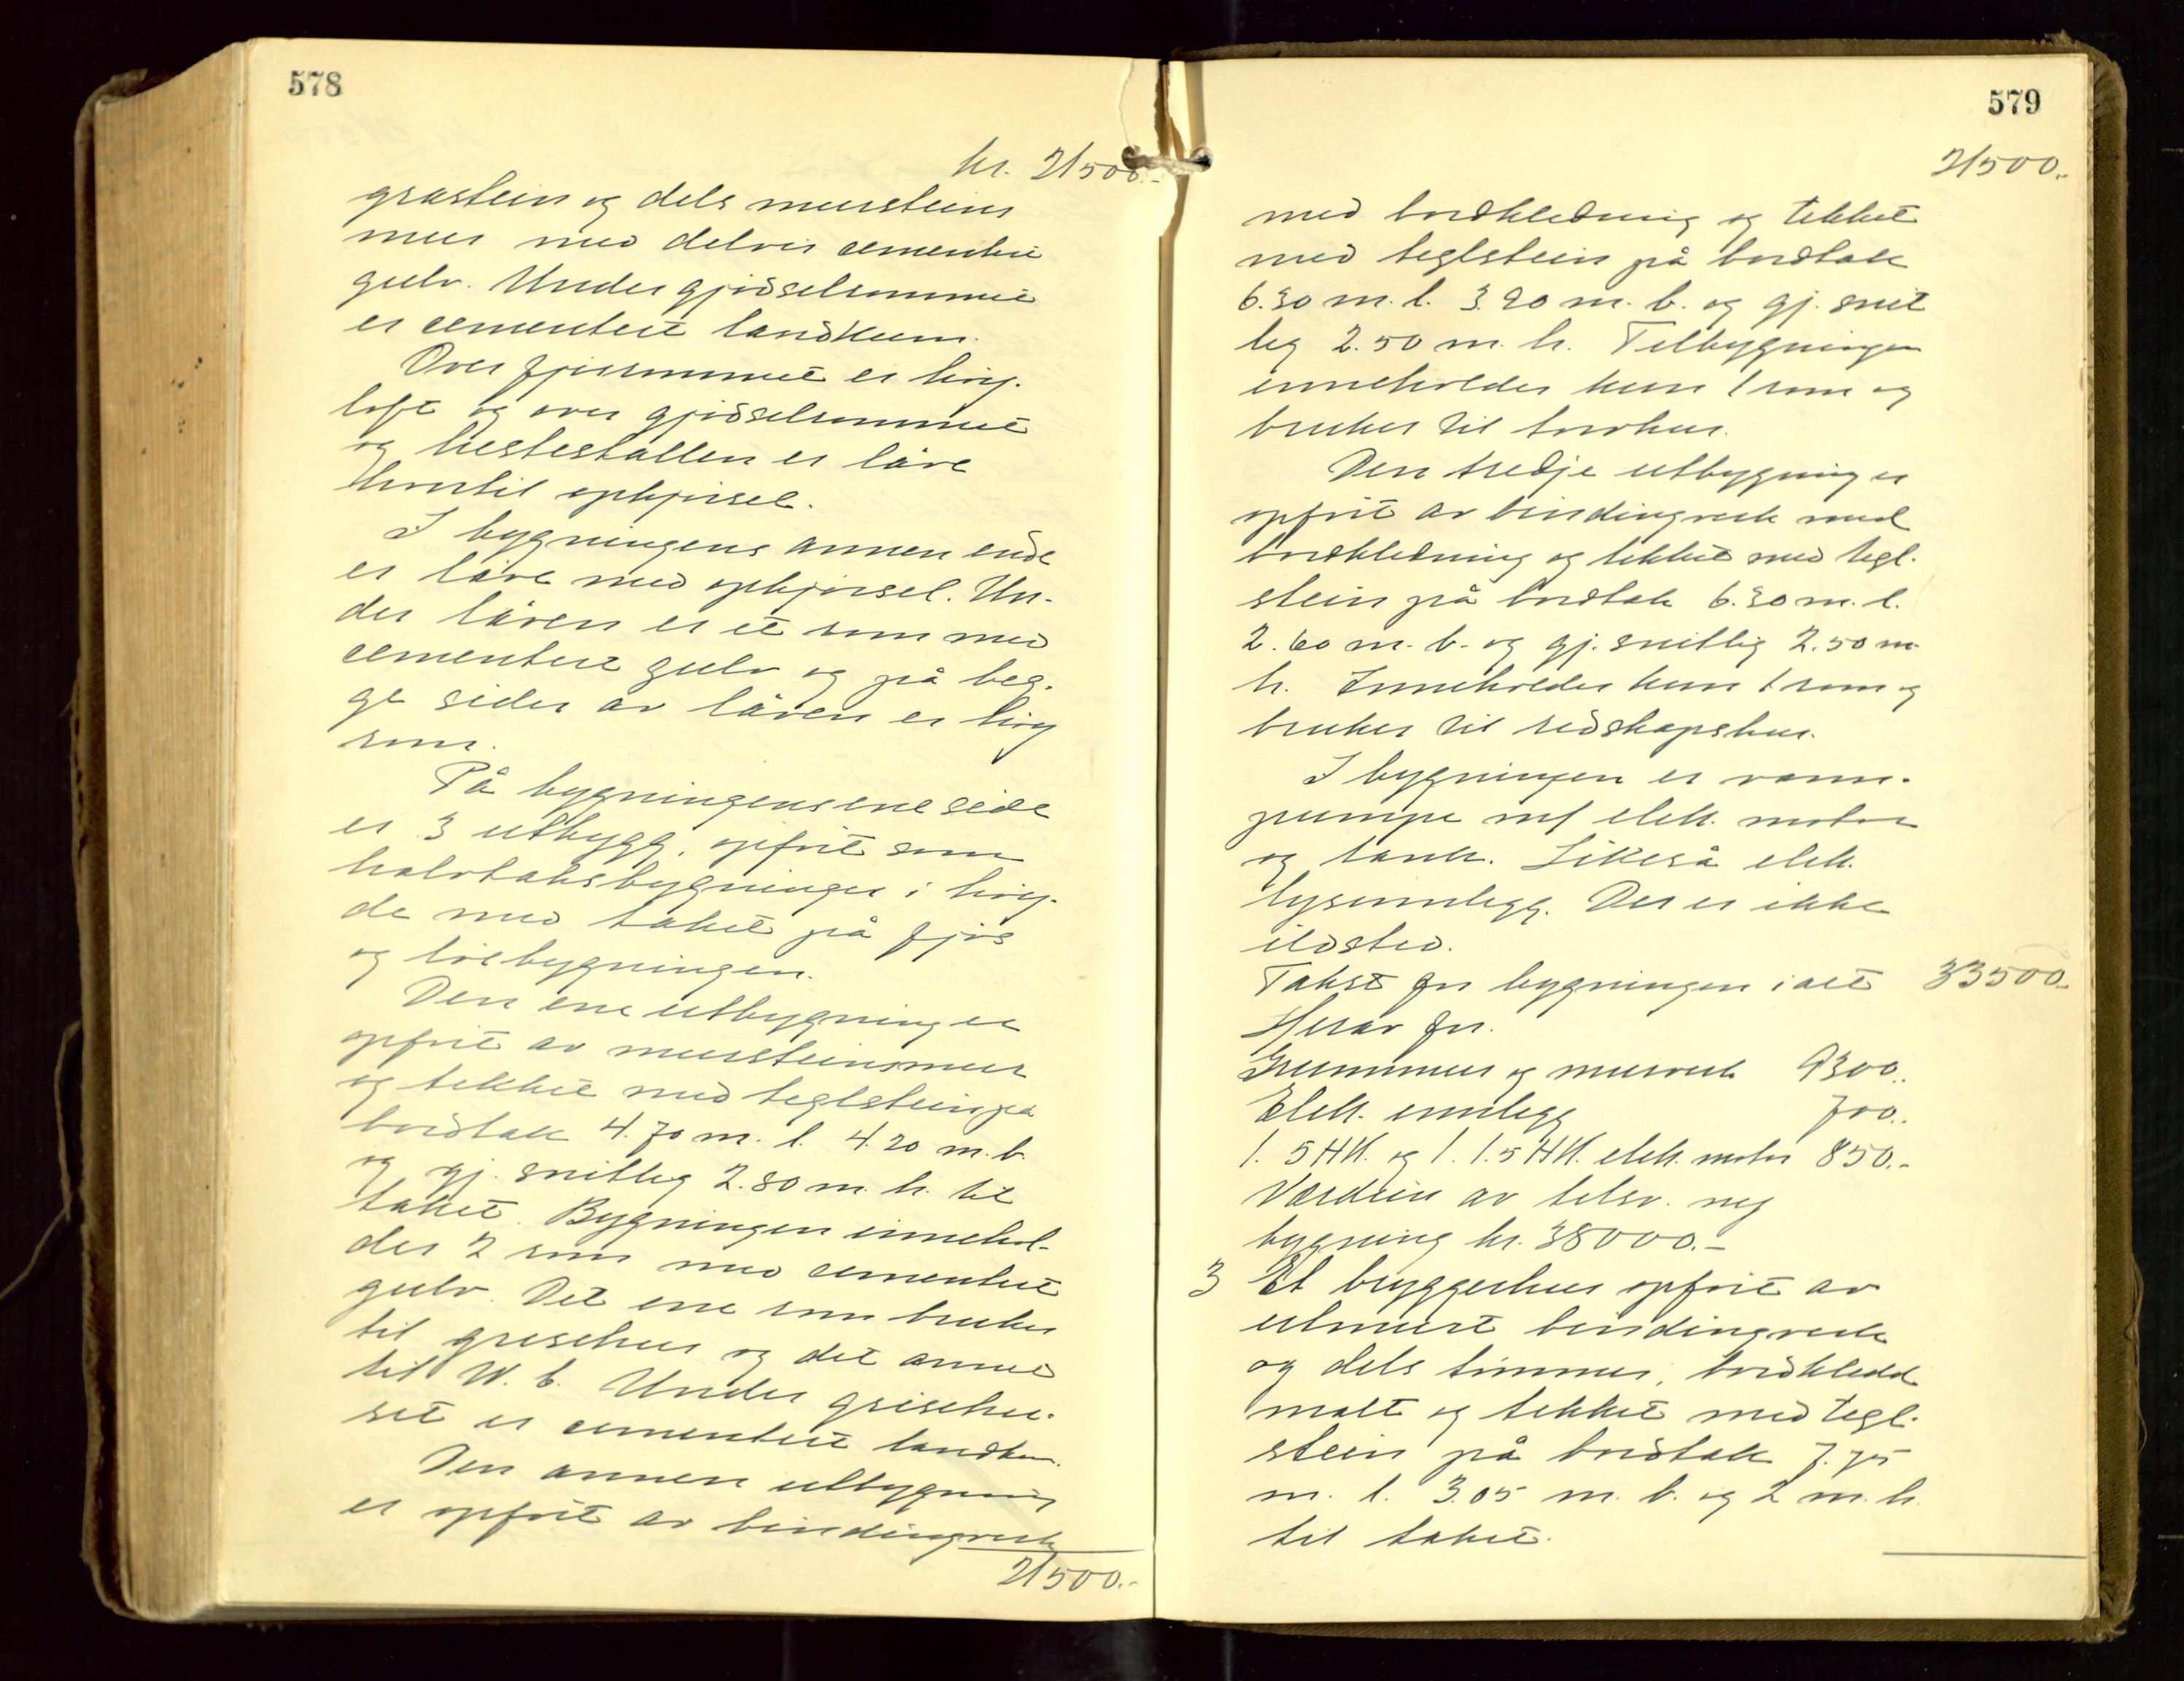 578
kr. 21500.-
gråstein og dels mursteins
mur med delvis cementert
gulv. Under gjødselrummet
er cementert landkum.
Over fjøsrummet er høy-
loft og over gjødselrummet
og hestestallen er låve
hvortil opkjørsel.
I bygningens annen ende
er låve med opkjørsel. Un-
der låven er et rom med
cementert gulv og på beg-
ge sider av låven er høy
rom.
På bygningens ene side
er 3 utbygg, opført som
halvtaksbygninger i høy-
de med taket på fjøs
og løebygningen.
Den ene utbygning er
opført av murstensmur
og tekket med teglstein på
bordtak 4.70 m. l. 4.20 m. b.
og gj. snitlig 2.80 m. h. til
taket. Bygningen innehol-
der 2 rom med cementert
gulv. Det ene rom brukes
til grisehus og det annet
til W. C. Under grisehu-
set er cementert landkum.
Den annen utbygning
er opført av bindingverk
21500.-
579
21500.-
med bordkledning og tekket
med teglstein på bordtak
6.30 m. l. 3.90 m. b. og gj. snit
lig 2.50 m. h. Tilbygningen
inneholder kun 1 rom og
brukes til torvhus.
Den tredje utbygning er
opført av bindingverk med
bordkledning og tekket med tegl-
stein på bordtak 6.30 m. l.
2.60 m. b. og gj. snittlig 2.50 m.
h. Inneholder kun 1 rom og
brukes til redskapshus.
I bygningen er vann-
pumpe m/ elek. motor
og tank. Likeså elek.
lysinnlegg. Der er ikke
ildsted.
Takst for bygningen i alt 33500.-
Herav for.
Grunnmur og murverk 9300.-
Elek. innlegg 700.-
1. 5 HK. og 1. 1.5 HK. elek. motor 850.-
Verdien av tilsv. ny
bygning kr. 38000.-
3 Et bryggerhus opført av
utmurt bindingverk
og dels tømmer, bordkledd
malt og tekket med tegl-
stein på bordtak 7.75
m. l. 3.05 m. b. og 2 m. h.
til taket.